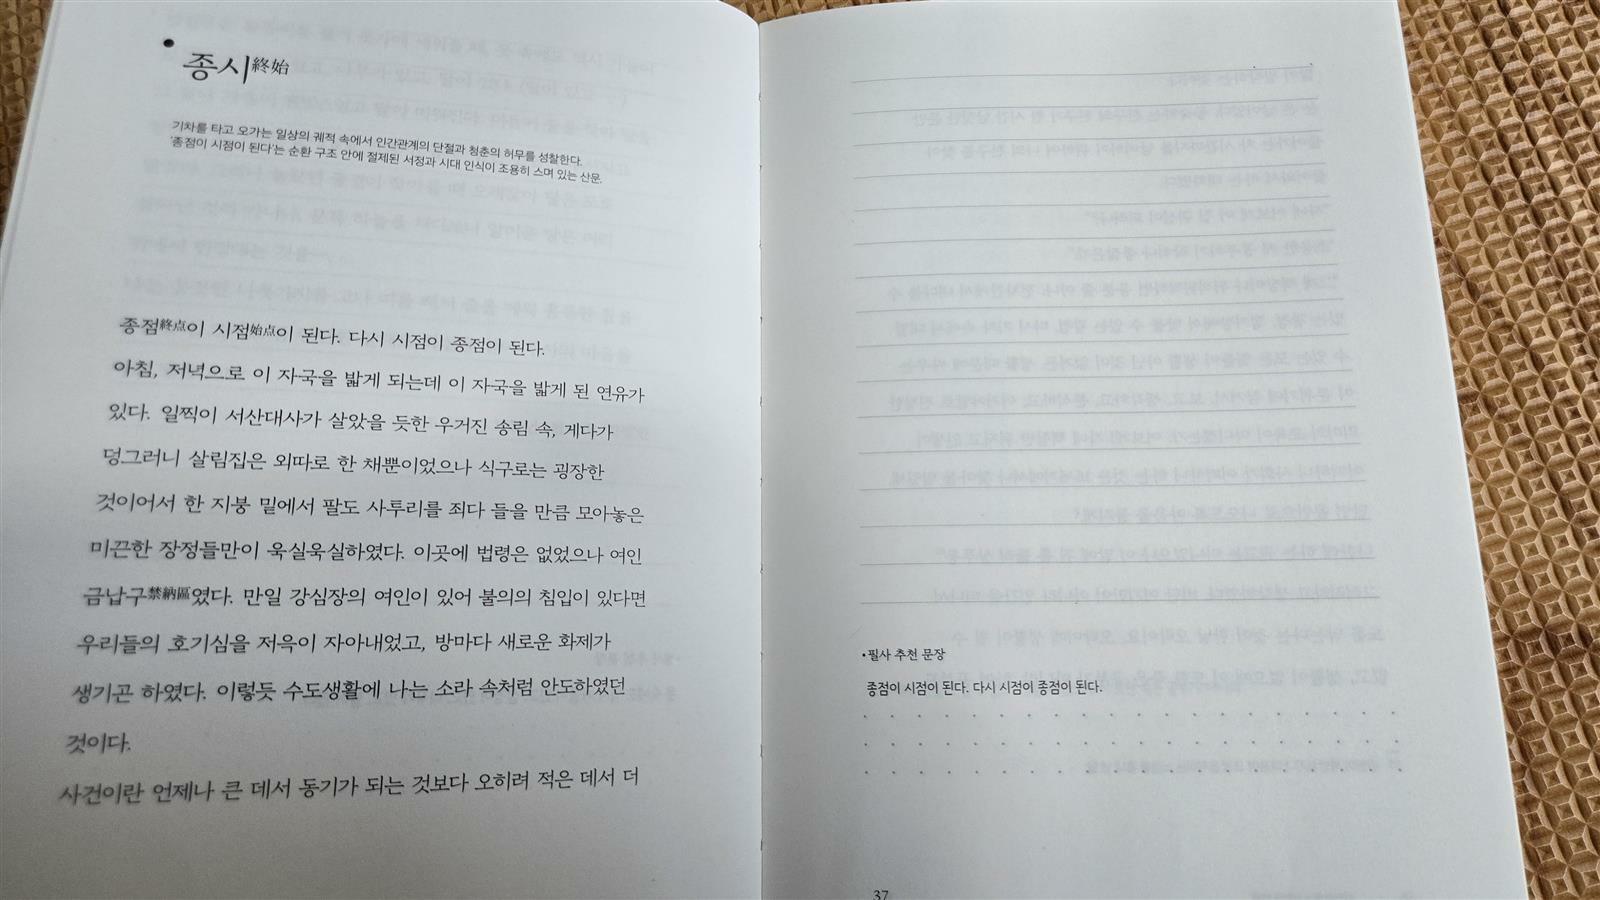 종시終始
기차를 타고 오가는 일상의 궤적 속에서 인간관계의 단절과 청춘의 허무를 성찰한다.
'종점이 시점이 된다'는 순환 구조 안에 절제된 서정과 시대 인식이 조용히 스며 있는 산문.
종점終点이 시점始点이 된다. 다시 시점이 종점이 된다.
아침, 저녁으로 이 자국을 밟게 되는데 이 자국을 밟게 된 연유가
있다. 일찍이 서산대사가 살았을 듯한 우거진 송림 속, 게다가
덩그러니 살림집은 외따로 한 채뿐이었으나 식구로는 굉장한
것이어서 한 지붕 밑에서 팔도 사투리를 죄다 들을 만큼 모아놓은
미끈한 장정들만이 욱실욱실하였다. 이곳에 법령은 없었으나 여인
금납구禁納區였다. 만일 강심장의 여인이 있어 불의의 침입이 있다면
우리들의 호기심을 저윽이 자아내었고, 방마다 새로운 화제가
생기곤 하였다. 이렇듯 수도생활에 나는 소라 속처럼 안도하였던
것이다.
사건이란 언제나 큰 데서 동기가 되는 것보다 오히려 적은 데서 더
•필사 추천 문장
종점이 시점이 된다. 다시 시점이 종점이 된다.
37